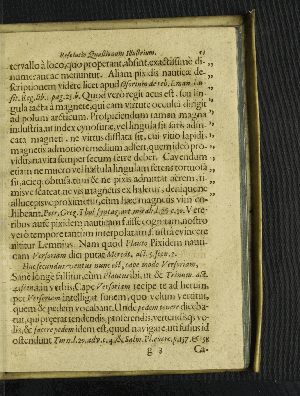 Refutatio Quæstionum Illustrium.
tervallo à loco, quo properant, absint, exactissimè di-
numerant ac metiuntur. Aliam pixidis nauticæ de-
scriptionem videre licet apud Osorium de reb. Eman. Lu-
sit. Reg. lib. 1. pag. 25. Quod verò regit acus est, seu lin-
gula tacta à magnete, qui eam virtute occulta dirigit
ad polum arcticum. Prospiciendum tamen magna
industria, ut index cynosuræ, vel lingula sit satis
cata magneti, ne virtus diffluat sit, cui vitio lapidis
magnetis admotio remedium adfert, quem ideò pro-
vidus navita semper secum ferre debet. Cavendum
etiam ne mucro vel hastula lingulam ferens tortuosa
sit, aciéve obtusa, tum & ne pixis admittat aerem, ni-
misve scateat, ne vis magnetis exhaletur, denique ne
allium pixidi proximet, cum hæc magnetis vim co-
hibeant. Petr. Greg. Tholos. syntag. art. mirab. l. Vete-
ribus autē pixidem nauticam fuisse cognitam, nostro
verò tempore tantùm interpolatam, frustra evincere
nititur Lemnius. Nam quod Plauto Pixidem nauti-
cam Versoriam dici putat Mercat. act. 5. scen. 2.
Huc secundus ventus nunc est, cape modo Versoriam,
Sanè longè fallitur, cum Plautus ibi, ut & Trinum. act.
scena in verbis, Cape Versoriam recipe te ad herum,
per Versoriam intelligat funem, quo velum vertitur,
quem & pedem vocabant. Unde pedem tenere dicitur,
cat, qui præerat tendendis, proferendis, vertendisq; ve-
lis, & facere pedem idem est, quod navigare, ut fusius id
ostendunt Turn. l. 20. adv. c. 4. & Salm. Plin. ex. p. 157. & 158
g 3
Ca-